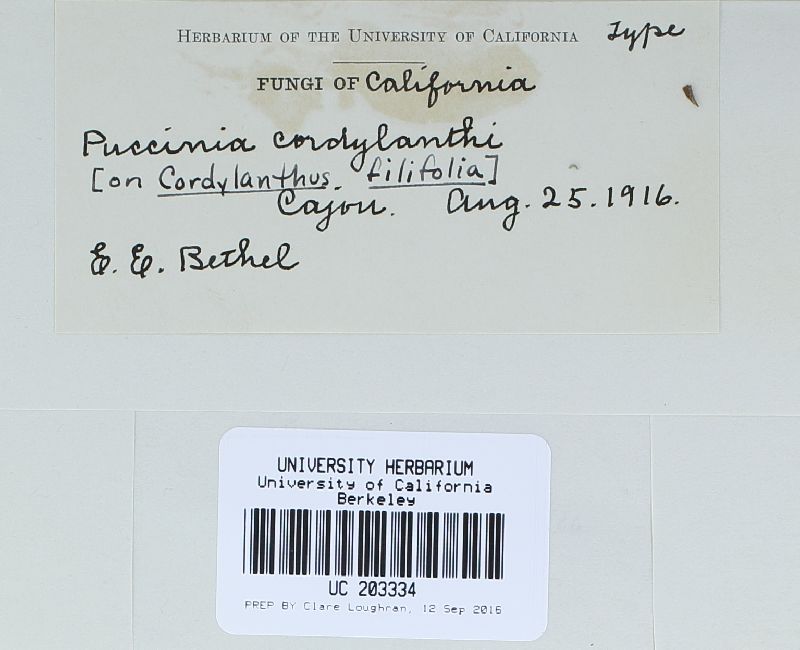 HERBARIUM OF THE UNIVERSITY OF CALIFORNIA Type
FUNGI OF California
Puccinia cordylanthi
[on Cordylanthus filifolia]
Cajon. Aug. 25. 1916.
E. E. Bethel
UNIVERSITY HERBARIUM
University of California
Berkeley
UC 203334
PREP BY Clare Loughran, 12 Sep 2016